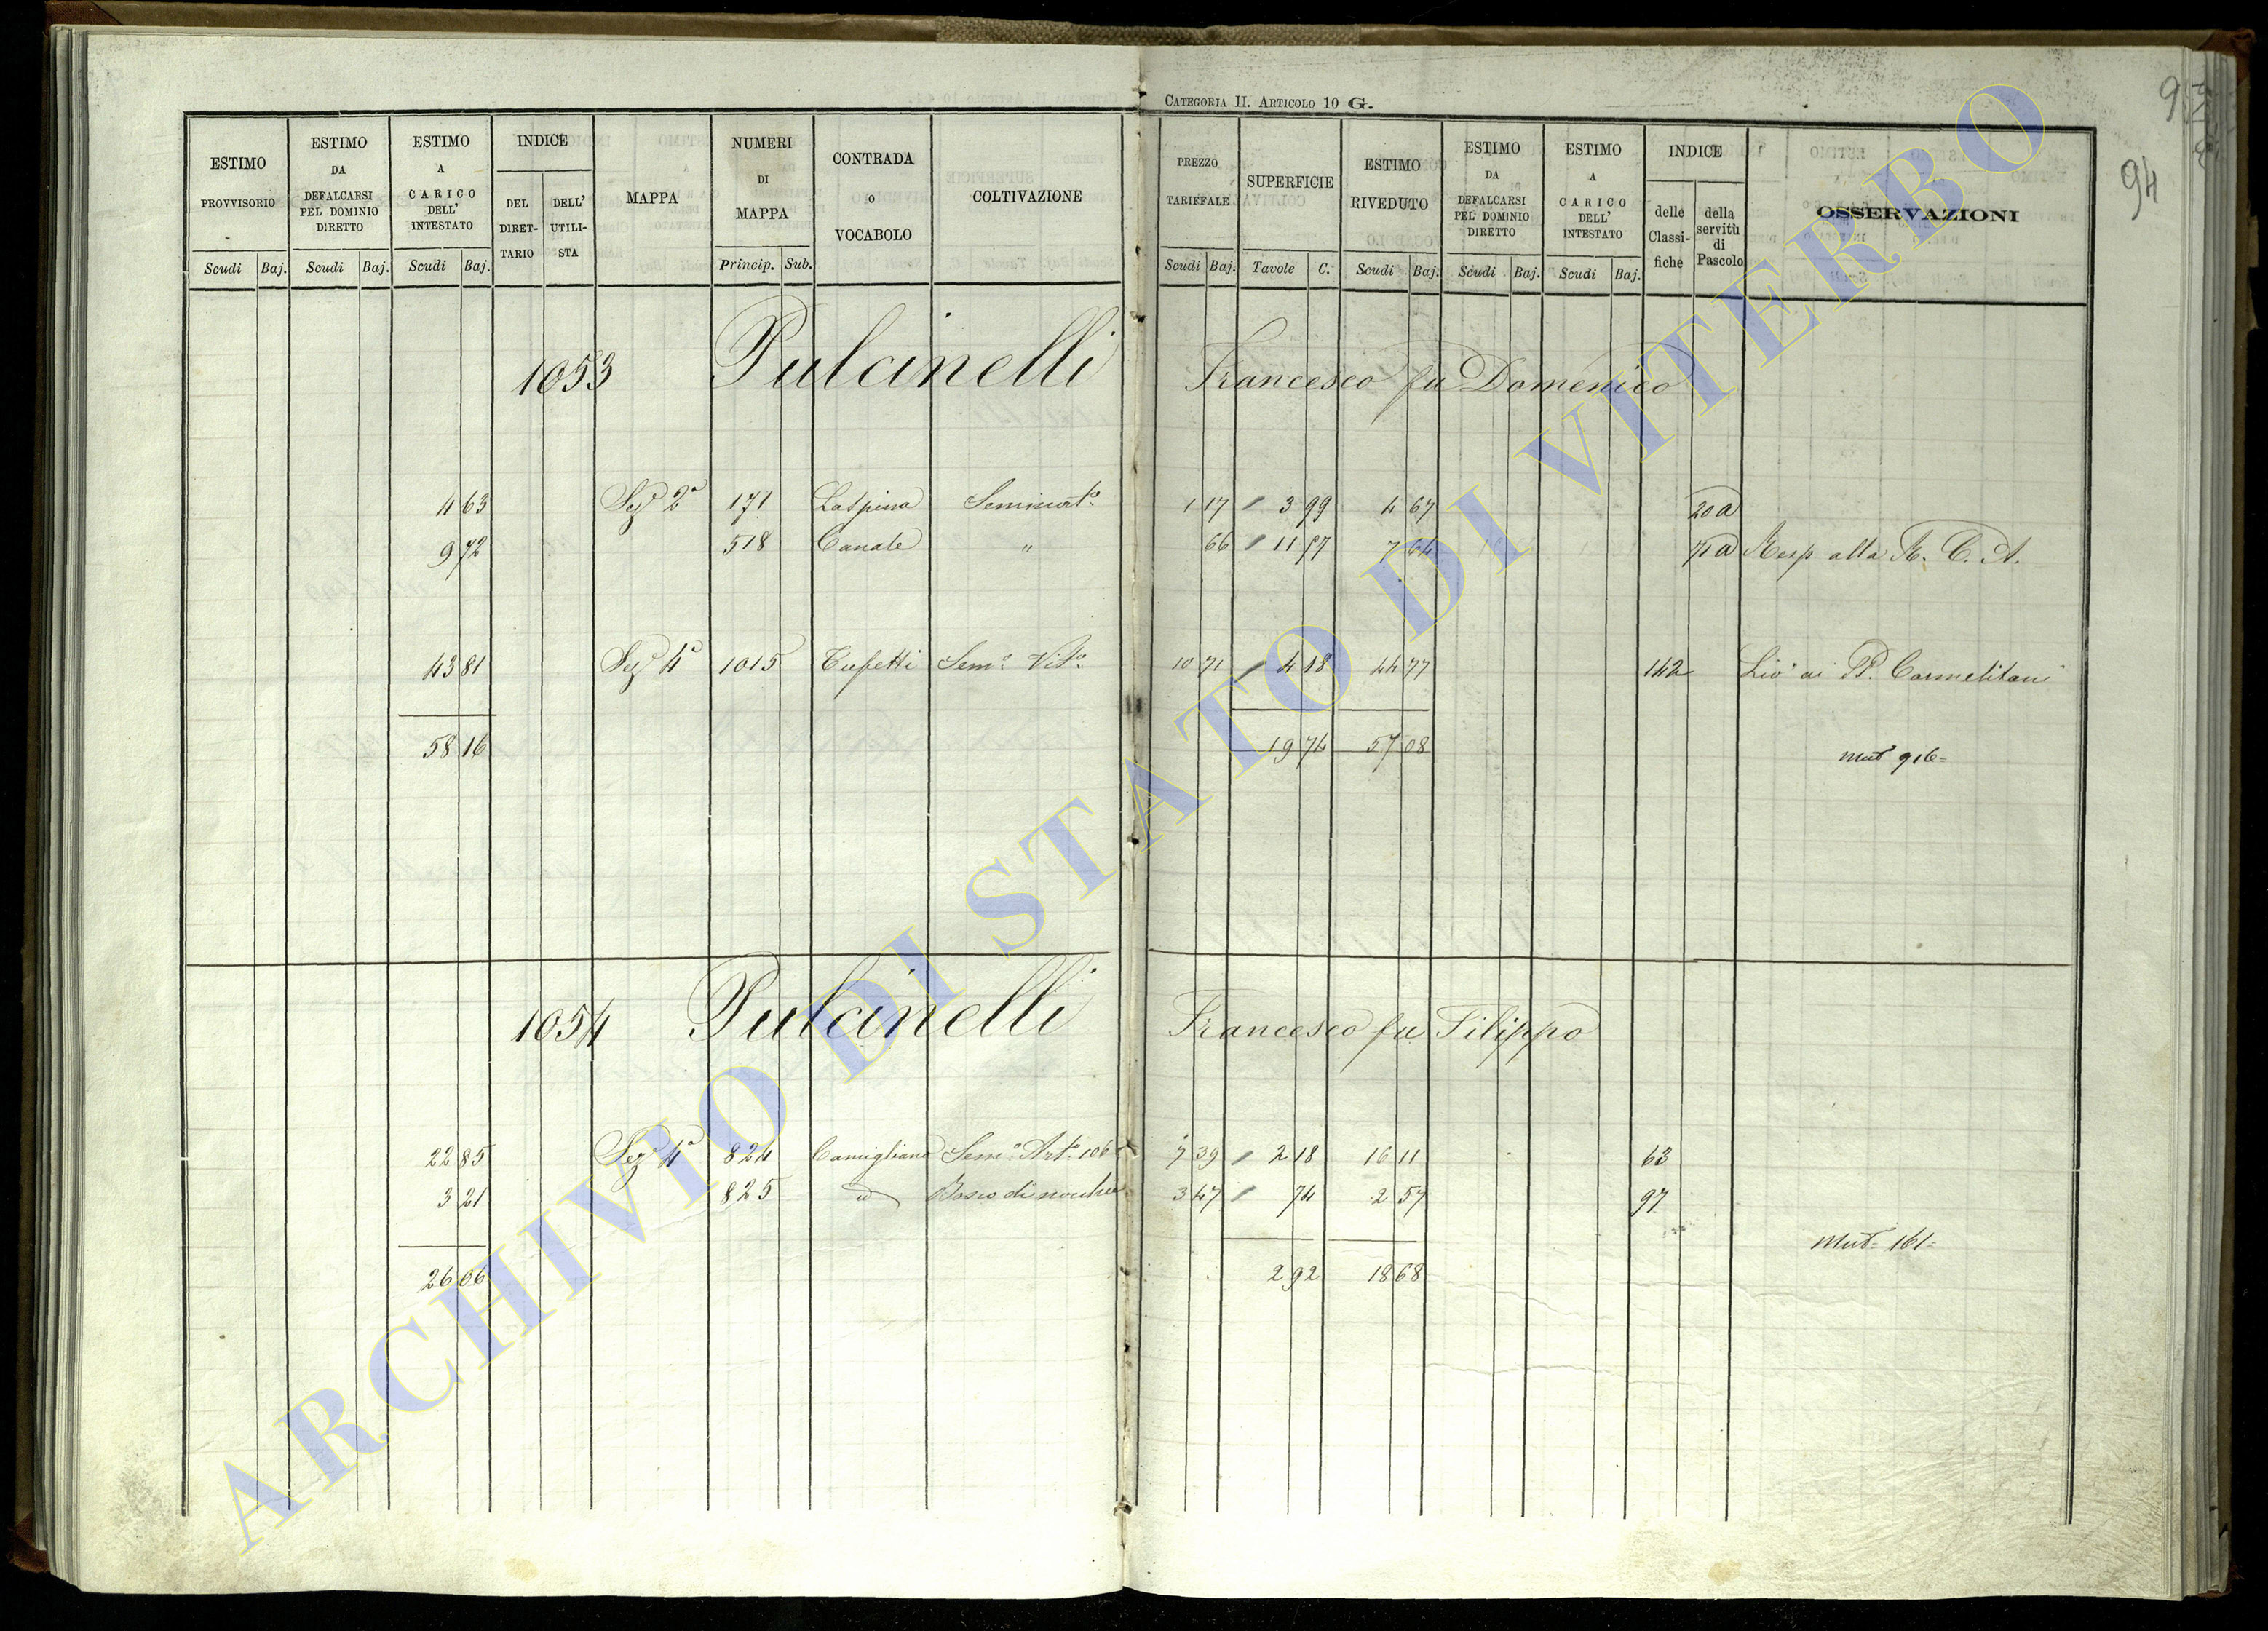 CATEGORIA II. ARTICOLO 10 G.
94
ESTIMO PROVVISORIO
ESTIMO DA DEFALCARSI PEL DOMINIO DIRETTO
ESTIMO A CARICO DELL' INTESTATO
INDICE
DEL DIRET-TARIO
DELL' UTILI-STA
MAPPA
NUMERI DI MAPPA
CONTRADA o VOCABOLO
COLTIVAZIONE
PREZZO TARIFFALE
SUPERFICIE
ESTIMO RIVEDUTO
ESTIMO DA DEFALCARSI PEL DOMINIO DIRETTO
ESTIMO A CARICO DELL' INTESTATO
INDICE
delle Classi-fiche
della servitù di Pascolo
OSSERVAZIONI
Scudi Baj. Scudi Baj. Scudi Baj. Princip. Sub. Scudi Baj. Tavole C. Scudi Baj. Scudi Baj. Scudi Baj.
1053 Pulcinelli Francesco fu Domenico
4 63 Sez.e 2a 171 Laspina Seminato 1 17 3 99 4 67 20a
9 72 518 Canale " 66 11 57 7 64 71a Resp alla R. C. A.
43 81 Sez.e 4a 1015 Tufetti Sem.o Vit.o 10 71 4 18 44 77 142 Liv.o ai PP. Carmelitani
58 16 19 74 57 08
Mut 916=
1054 Pulcinelli Francesco fu Filippo
22 85 Sez.e 4a 824 Camigliano Sem.o Art.o 106 7 39 2 18 16 11 63
3 21 825 id Bosco di 3 47 74 2 57 97
Mut= 161=
26 06 2 92 18 68
ARCHIVIO DI STATO DI VITERBO